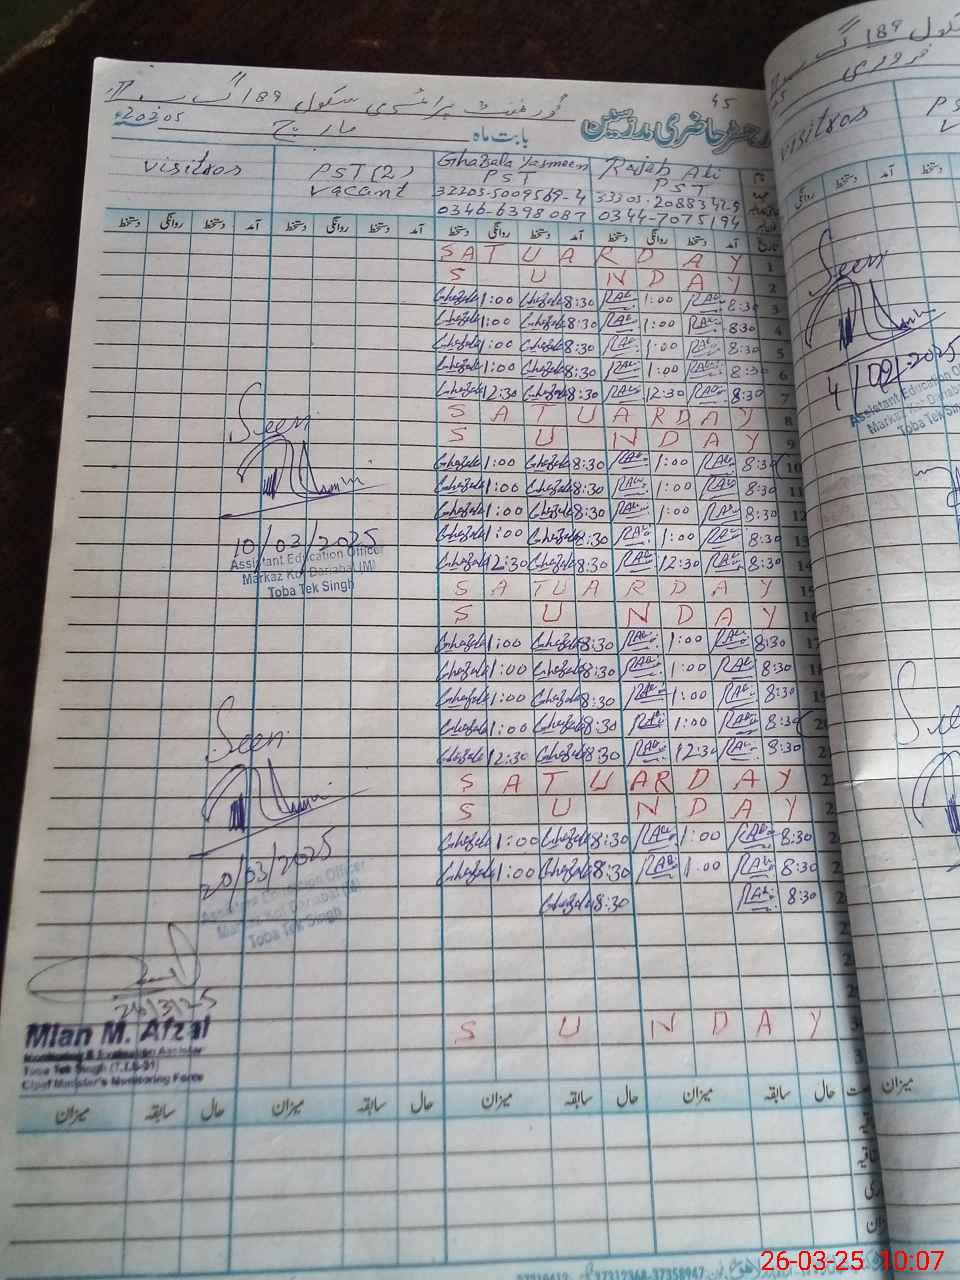 45
گورنمنٹ پرائمری سکول 189 گ ب
رجسٹر حاضری مدرسین
بابت ماہ مارچ
visitros
PST (2)
vacant
Ghazala Yasmeen
PST
0346-6398087
Rajab Ali
PST
0344-7075194
دستخط روانگی دستخط آمد دستخط روانگی دستخط آمد دستخط روانگی دستخط آمد دستخط روانگی دستخط آمد تاریخ
SATUARDAY 1
SUNDAY 2
Ghazala 1:00 Ghazala 8:30 RAli 1:00 RAli 8:30 3
Ghazala 1:00 Ghazala 8:30 RAli 1:00 RAli 8:30 4
Ghazala 1:00 Ghazala 8:30 RAli 1:00 RAli 8:30 5
Ghazala 1:00 Ghazala 8:30 RAli 1:00 RAli 8:30 6
Ghazala 12:30 Ghazala 8:30 RAli 12:30 RAli 8:30 7
SATUARDAY 8
SUNDAY 9
Ghazala 1:00 Ghazala 8:30 RAli 1:00 RAli 8:30 10
Ghazala 1:00 Ghazala 8:30 RAli 1:00 RAli 8:30 11
Ghazala 1:00 Ghazala 8:30 RAli 1:00 RAli 8:30 12
Ghazala 1:00 Ghazala 8:30 RAli 1:00 RAli 8:30 13
Ghazala 12:30 Ghazala 8:30 RAli 12:30 RAli 8:30 14
SATUARDAY 15
SUNDAY 16
Ghazala 1:00 Ghazala 8:30 RAli 1:00 RAli 8:30
Ghazala 1:00 Ghazala 8:30 RAli 1:00 RAli 8:30
Ghazala 1:00 Ghazala 8:30 RAli 1:00 RAli 8:30
Ghazala 1:00 Ghazala 8:30 RAli 1:00 RAli 8:30
Ghazala 12:30 Ghazala 8:30 RAli 12:30 RAli 8:30
SATUARDAY
SUNDAY
Ghazala 1:00 Ghazala 8:30 RAli 1:00 RAli 8:30
Ghazala 1:00 Ghazala 8:30 RAli 1:00 RAli 8:30
Ghazala 8:30 RAli 8:30
SUNDAY
Seen
10/03/2025
Assistant Education Officer
Markaz Kot Dariabal (M)
Toba Tek Singh
Seen
20/03/2025
Assistant Education Officer
Markaz Kot Dariabal (M)
Toba Tek Singh
Mian M. Afzal
Monitoring & Evaluation Assistant
Toba Tek Singh
Chief Minister's Monitoring Force
میزان سابقہ حال میزان سابقہ حال میزان سابقہ حال میزان سابقہ حال
189 گ ب
فروری
visitros
Seen
Assistant Education
Toba Tek
میزان
26-03-25 10:07